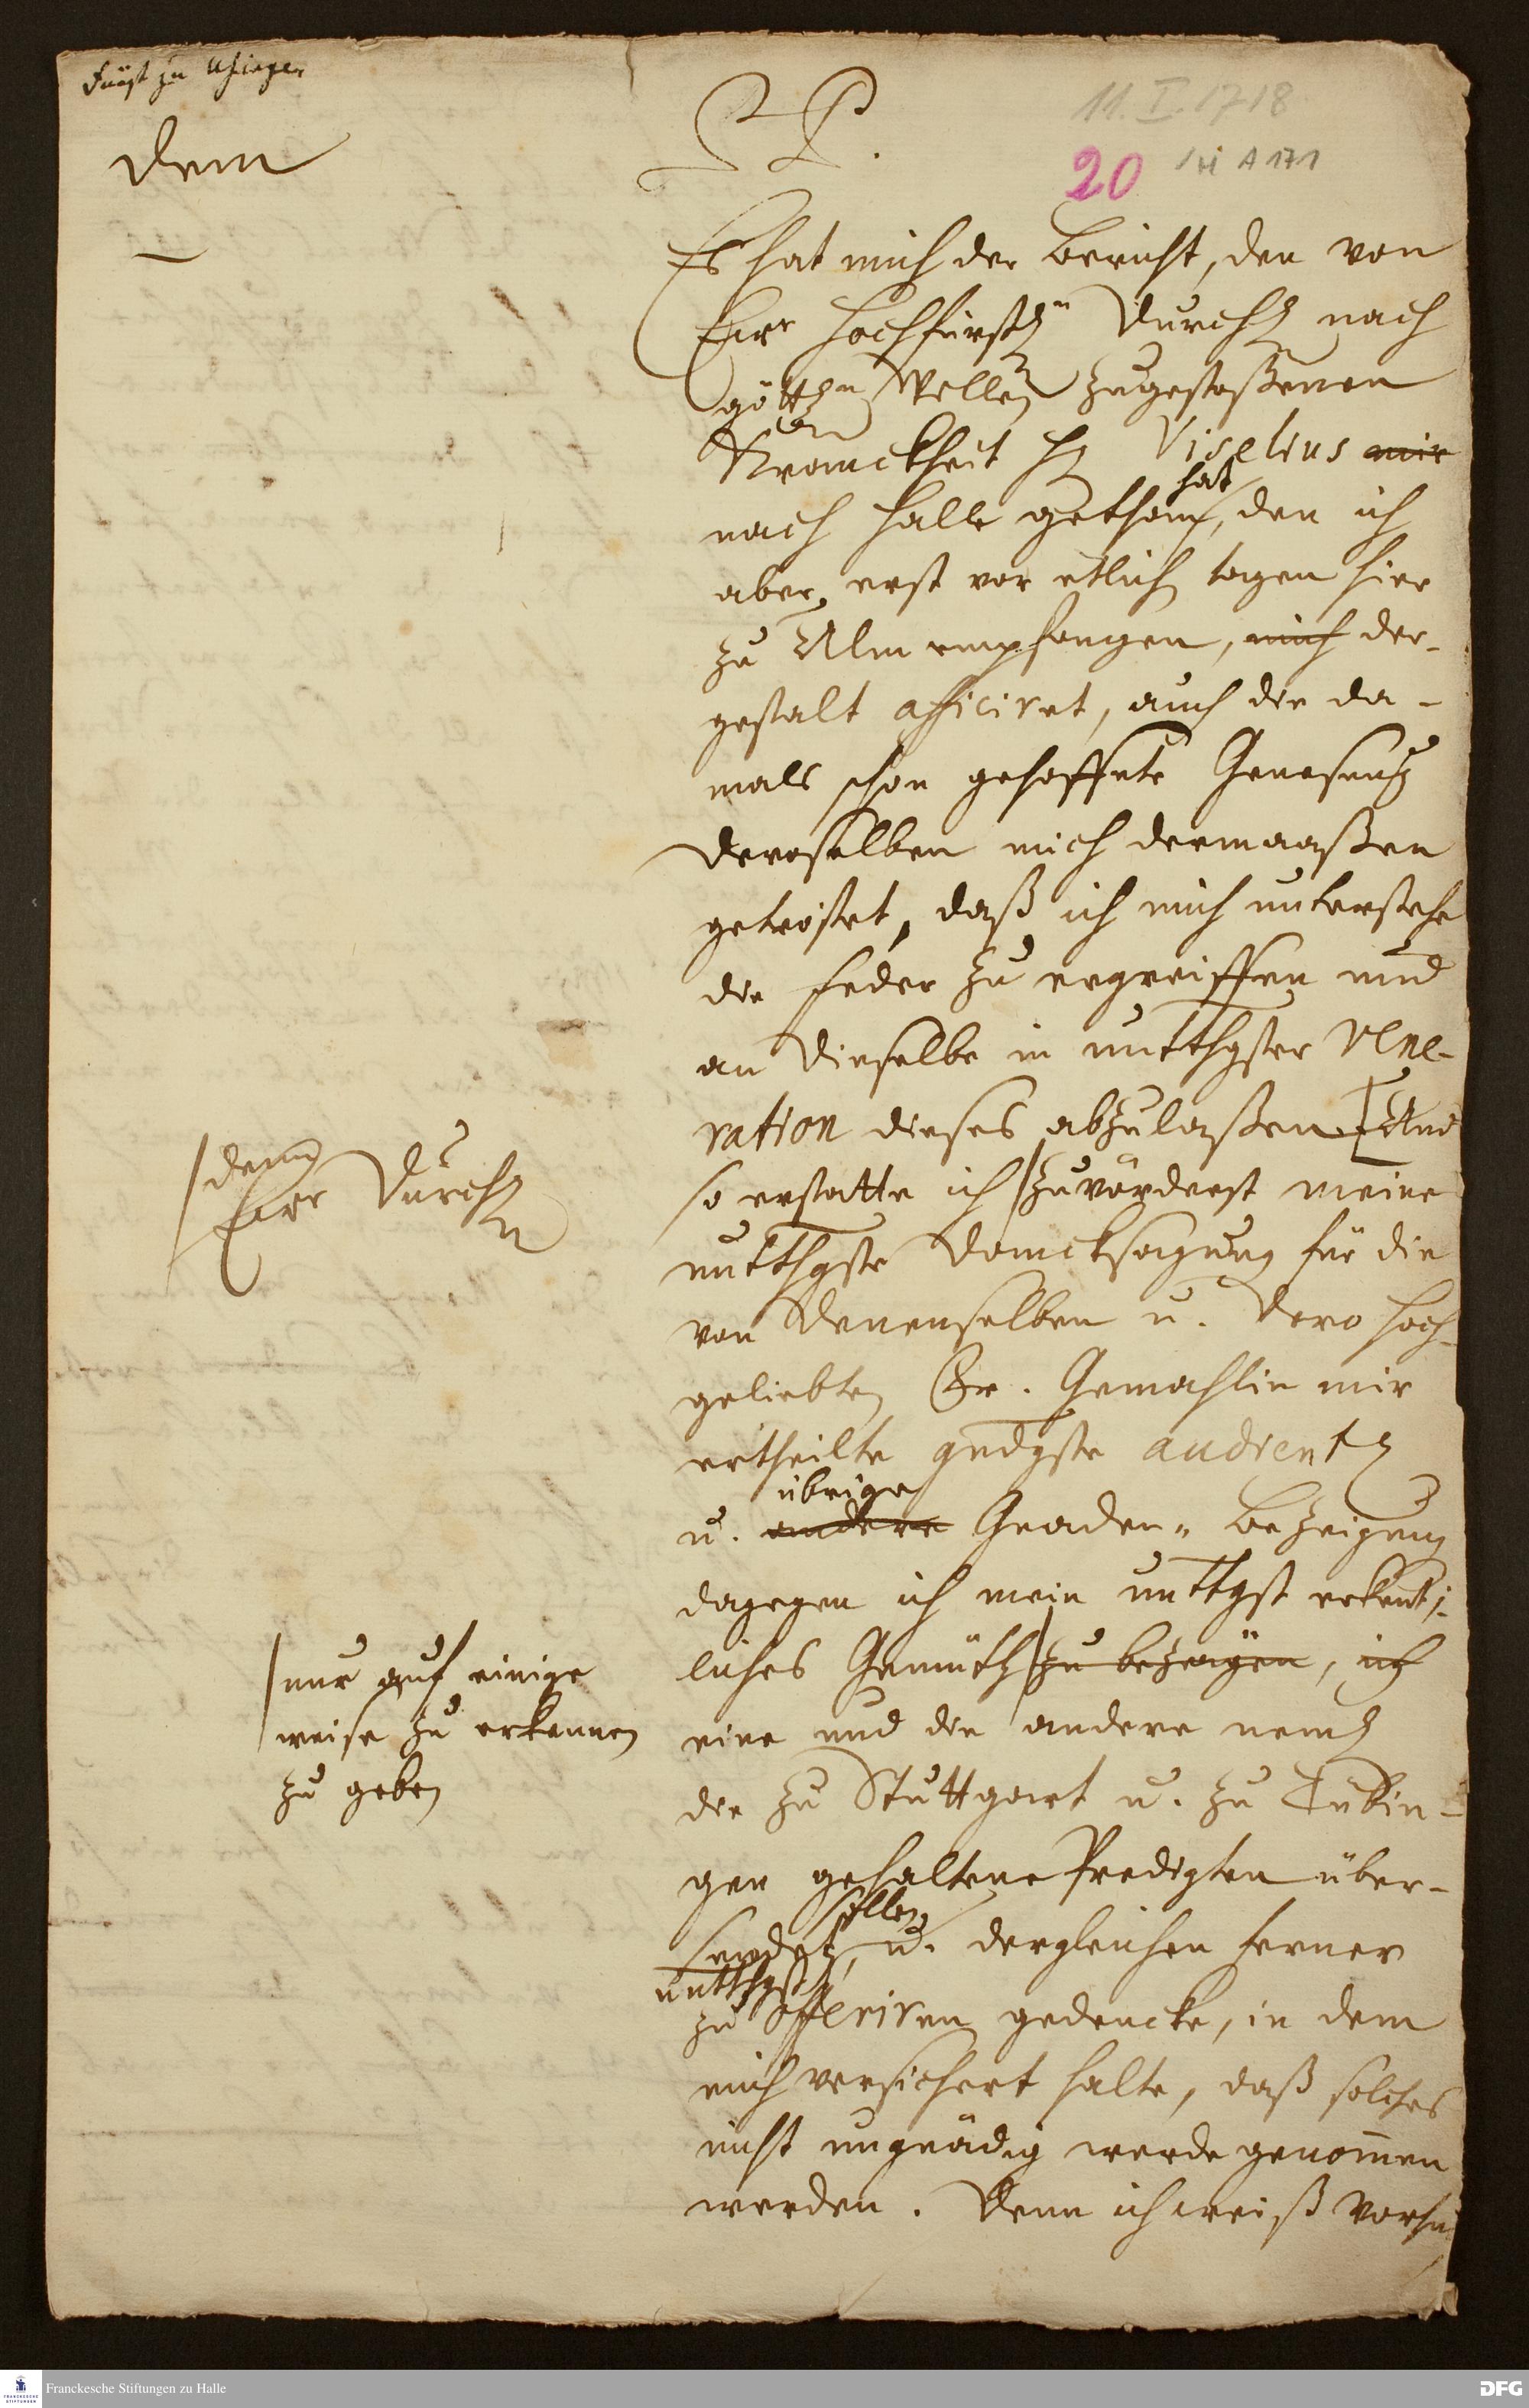 Fürst zu Usingen
dem
11. I. 1718
20 A 171
Es hat mich der bericht, den von
Ewr hochfürstl Durchl nach
göttl Willen zugestoßenen
Kranckheit H Viselius mir
hat
nach Halle gethan, den ich
aber erst vor etlich tagen hier
zu Ulm empfangen, mich der-
gestalt afficiret, auch die da-
mals schon gehoffete Genesung
deroselben mich dermaaßen
getröstet, daß ich mich unterstehe
die feder zu ergreiffen und
an Dieselbe in untthgster Vene-
ration dieses abzulaßen. Und
so erstatte ich zuvörderst meine
untthgste Dancksagung für die
von Denenselben u. Dero hoch-
geliebten Fr. Gemahlin mir
ertheilte gndgste audientz
übrige
u. andere Gnaden- bezeigung
dagegen ich mein unttgst erkent-
liches Gemüth zu bezeugen, ich
eine und die andere neml
die zu Stuttgart u. zu Tübin-
gen gehaltene Predigten über-
sollen
senden, u. dergleichen ferner
untthgst
zu offeriren gedencke, in dem
mich versichert halte, daß solches
nicht ungnädig werde genomen
werden. Denn ich weiß vorhin
denn
Ewr Durchl
nur auf einige
weise zu erkennen
zu geben
FRANCKESCHE
STIFTUNGEN
Franckesche Stiftungen zu Halle
DFG